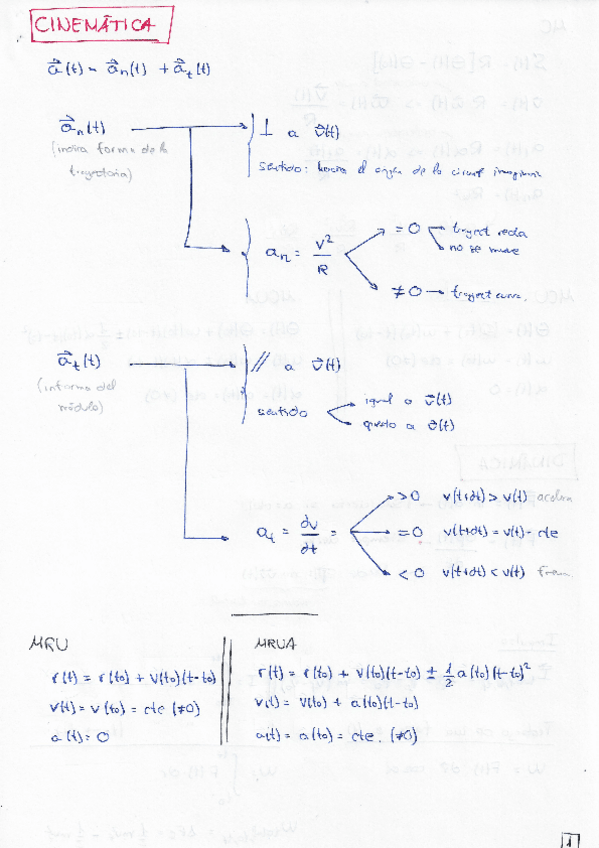 CINEMÁTICA
a⃗(t) = a⃗n(t) + a⃗t(t)
a⃗n(t)
(indica forma de la
trayectoria)
⊥ a v⃗(t)
sentido: hacia el origen de la circunf imaginaria
an = v²/R
= 0 → trayect recta
→ no se mueve
≠ 0 → trayect curva.
a⃗t(t)
(informa del
módulo)
// a v⃗(t)
sentido
igual a v⃗(t)
opuesto a v⃗(t)
at = dv/dt =
> 0 v(t+dt) > v(t) acelera
= 0 v(t+dt) = v(t) = cte
< 0 v(t+dt) < v(t) frena
MRU
r(t) = r(to) + v(to)(t-to)
v(t) = v(to) = cte (≠0)
a(t) = 0
MRUA
r(t) = r(to) + v(to)(t-to) ± ½ a(to)(t-to)²
v(t) = v(to) + a(to)(t-to)
a(t) = a(to) = cte. (≠0)
1